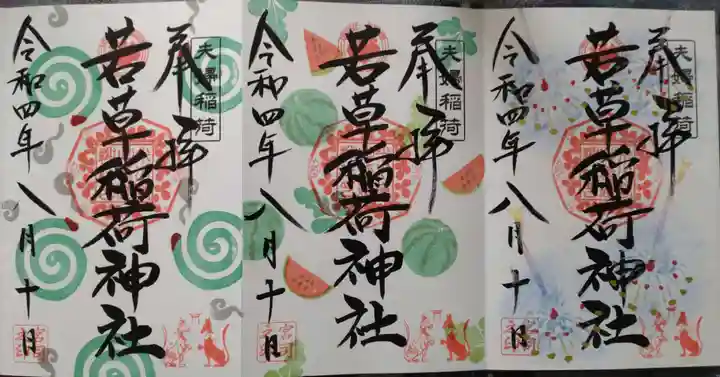 奉拝
夫婦稲荷
若草稲荷神社
令和四年八月十日
奉拝
夫婦稲荷
若草稲荷神社
令和四年八月十日
奉拝
夫婦稲荷
若草稲荷神社
令和四年八月十日